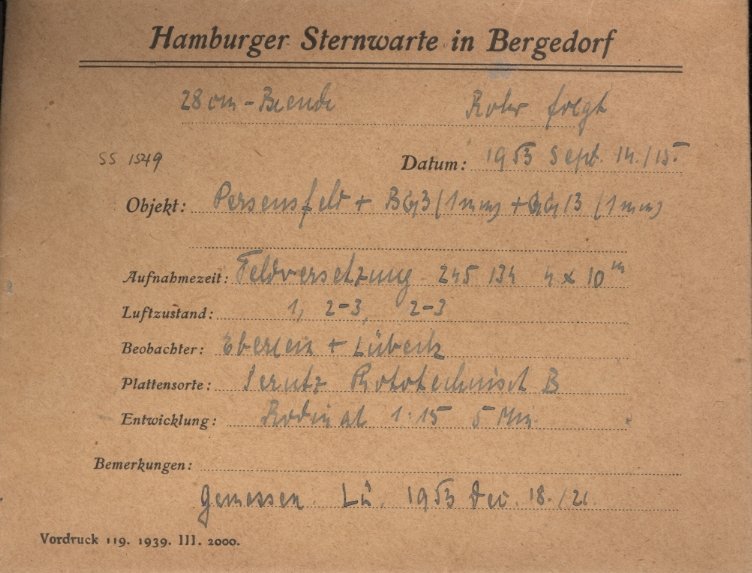 Hamburger Sternwarte in Bergedorf
28 cm - Blende Rohr folgt
SS 1549 Datum: 1953 Sept. 14./15.
Objekt: Perseusfeld + BG3 (1mm) + GG13 (1mm)
Aufnahmezeit: Feldversetzung 245 134 4 x 10 m
Luftzustand: 1, 2-3, 2-3
Beobachter: + Lübeck
Plattensorte: Perutz Phototechnisch B
Entwicklung: Rodinal 1:15 5 Min.
Bemerkungen:
Gemessen. Lü. 1953 Dez. 18./21
Vordruck 119. 1939. III. 2000.